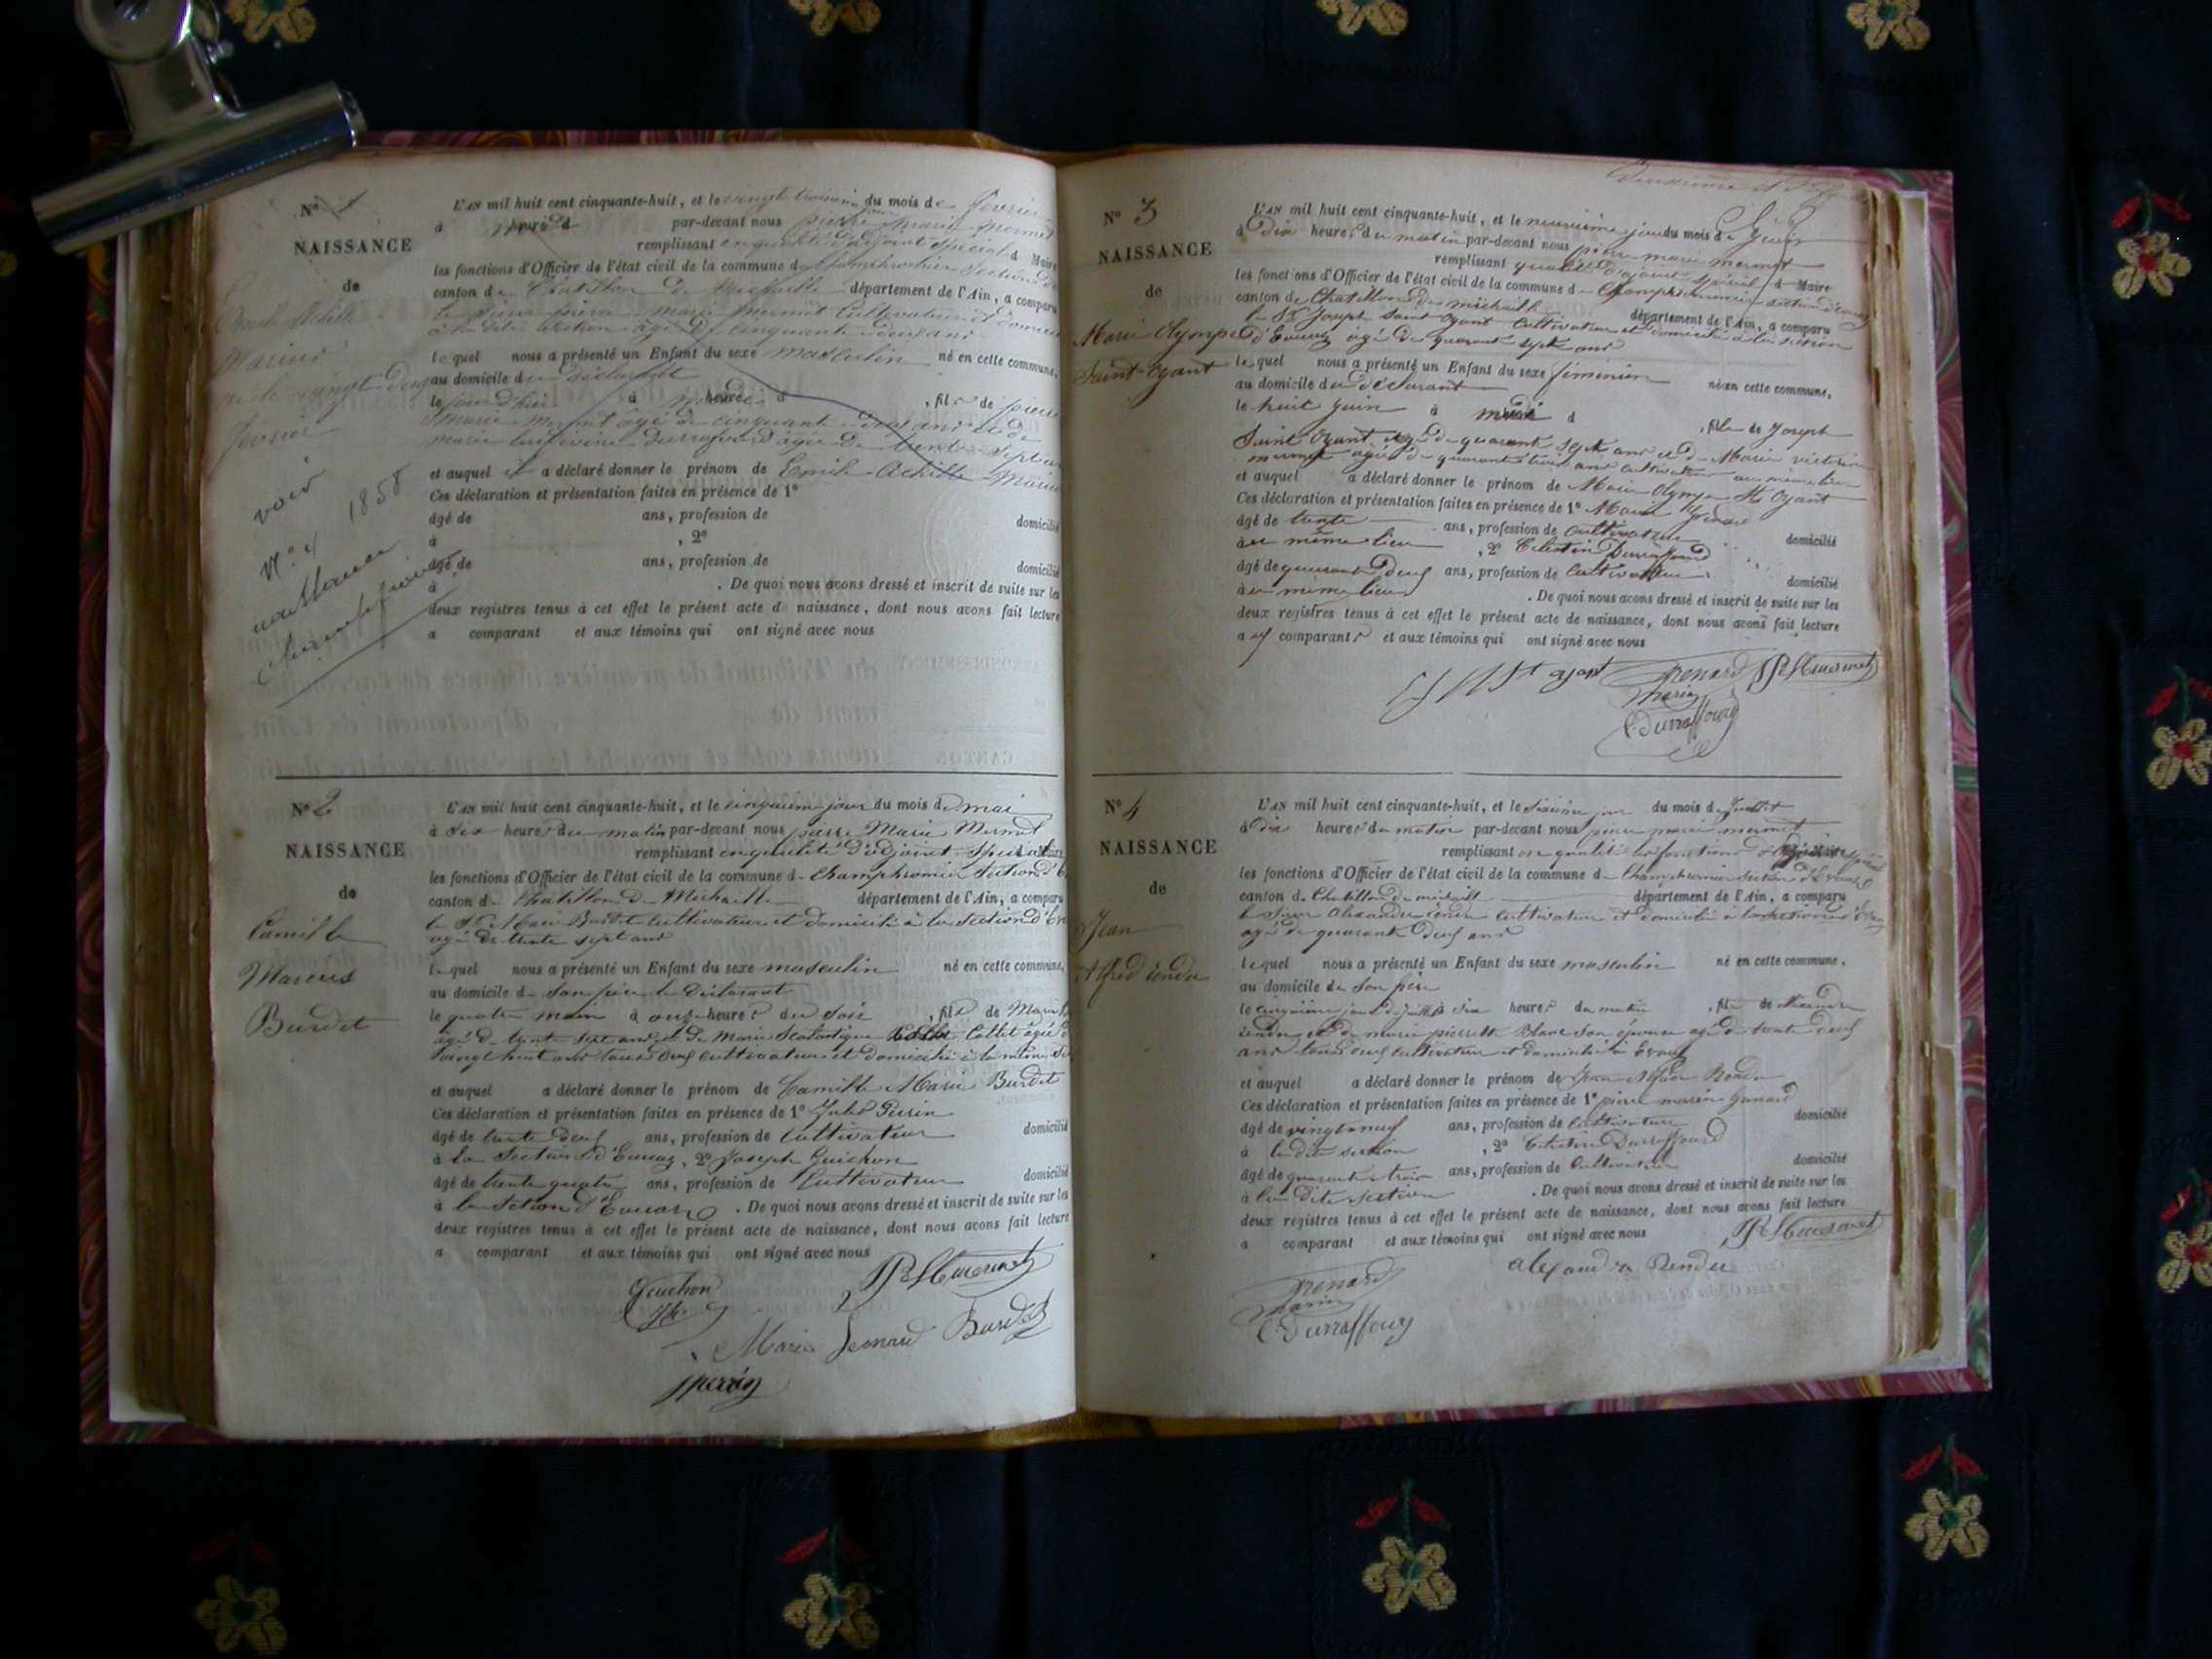 N° 1
NAISSANCE
de
Emile Achille
Marius
né le vingt deux
février
voir
N° 4 1858
naissance
L'AN mil huit cent cinquante-huit, et le vingt troisième jour du mois de février
à heure d par-devant nous pierre Marie Mermet
remplissant en qualité d'adjoint spécial d Maire
les fonctions d'Officier de l'état civil de la commune de Champfromier Section
canton de Chatillon de Michaille département de l'Ain, a comparu
le sieur pierre marie Mermet Cultivateur et domicilié
à la dite Section âgé de cinquante deux ans
lequel nous a présenté un Enfant du sexe masculin né en cette commune,
au domicile du déclarant
le jour d'hier à heure d , fils de pierre
Marie Mermet âgé de cinquante deux ans et de
marie âgée de trente sept ans
et auquel il a déclaré donner le prénom de Emile Achille Marius
Ces déclaration et présentation faites en présence de 1°
âgé de ans, profession de domicilié
à , 2°
âgé de ans, profession de domicilié
à . De quoi nous avons dressé et inscrit de suite sur les
deux registres tenus à cet effet le présent acte de naissance, dont nous avons fait lecture
a comparant et aux témoins qui ont signé avec nous
N° 2
NAISSANCE
de
Camille
Marius
Burdet
L'AN mil huit cent cinquante-huit, et le cinquième jour du mois de mai
à six heures du matin par-devant nous pierre Marie Mermet
remplissant en qualité d'adjoint Spécial
les fonctions d'Officier de l'état civil de la commune de Champfromier Section d'
canton de Chatillon de Michaille département de l'Ain, a comparu
le Sr Marie Burdet Cultivateur et domicilié à la Section d'
agé de trente sept ans
lequel nous a présenté un Enfant du sexe masculin né en cette commune,
au domicile de Son père le Déclarant
le quatre à onze heures du Soir , fils de Marie
agé de trente sept ans et de Marie Scolastique Collet agée
vingt huit ans tous deux cultivateurs et domiciliés à la même
et auquel a déclaré donner le prénom de Camille Marie Burdet
Ces déclaration et présentation faites en présence de 1° Jules Perrin
âgé de trente deux ans, profession de Cultivateur domicilié
à la Section d'Evuaz, 2° Joseph Guichon
âgé de trente quatre ans, profession de Cultivateur domicilié
à la Section d' . De quoi nous avons dressé et inscrit de suite sur les
deux registres tenus à cet effet le présent acte de naissance, dont nous avons fait lecture
a comparant et aux témoins qui ont signé avec nous
Guichon PRMMermet
Marie Burdet
jperrin
N° 3
NAISSANCE
de
Marie Olympe
Saint-Oyant
L'AN mil huit cent cinquante-huit, et le neuvième jour du mois de Juin
à Dix heures du matin par-devant nous pierre marie mermet
remplissant qualité d'adjoint spécial d Maire
les fonctions d'Officier de l'état civil de la commune de Champfromier section d'
canton de Chatillon de michaille département de l'Ain, a comparu
le Sr Joseph Saint Oyant Cultivateur et domicilié à la section
d'Evuaz agé de quarante sept ans
lequel nous a présenté un Enfant du sexe féminin né en cette commune,
au domicile du déclarant
le huit Juin à d , fille de Joseph
Saint Oyant agé de quarante sept ans et de Marie victorine
mermet agée de quarante trois ans cultivateurs au même lieu
et auquel a déclaré donner le prénom de Marie Olympe St Oyant
Ces déclaration et présentation faites en présence de 1° Marie
âgé de trente ans, profession de cultivateur domicilié
à au même lieu , 2° Célestin Durraffourd
âgé de quarante deux ans, profession de Cultivateur domicilié
à au même lieu . De quoi nous avons dressé et inscrit de suite sur les
deux registres tenus à cet effet le présent acte de naissance, dont nous avons fait lecture
a comparant et aux témoins qui ont signé avec nous
St oyant Grenard PRMMermet
Marie
C Durraffourg
N° 4
NAISSANCE
de
Jean
Alfred
L'AN mil huit cent cinquante-huit, et le sixième jour du mois de Juillet
à dix heures du matin par-devant nous pierre marie mermet
remplissant en qualité les fonctions d'
les fonctions d'Officier de l'état civil de la commune de Champfromier section d'Evuaz
canton de Chatillon de michaille département de l'Ain, a comparu
le Sieur Alexandre cultivateur et domicilié à la section d'
agé de quarante deux ans
lequel nous a présenté un Enfant du sexe masculin né en cette commune,
au domicile de Son père
le cinquième jour de juillet à six heures du matin , fils de Alexandre
et de marie pierrette Blanc son épouse agée de trente deux
ans tous deux cultivateurs et domiciliés à Evuaz
et auquel a déclaré donner le prénom de Jean Alfred
Ces déclaration et présentation faites en présence de 1° pierre marie Grenard
âgé de vingt neuf ans, profession de Cultivateur domicilié
à la dite section , 2° Celestin Durraffourd
âgé de quarante trois ans, profession de Cultivateur domicilié
à la dite section . De quoi nous avons dressé et inscrit de suite sur les
deux registres tenus à cet effet le présent acte de naissance, dont nous avons fait lecture
a comparant et aux témoins qui ont signé avec nous PRMMermet
Grenard alexandre
marie
C Durraffourg